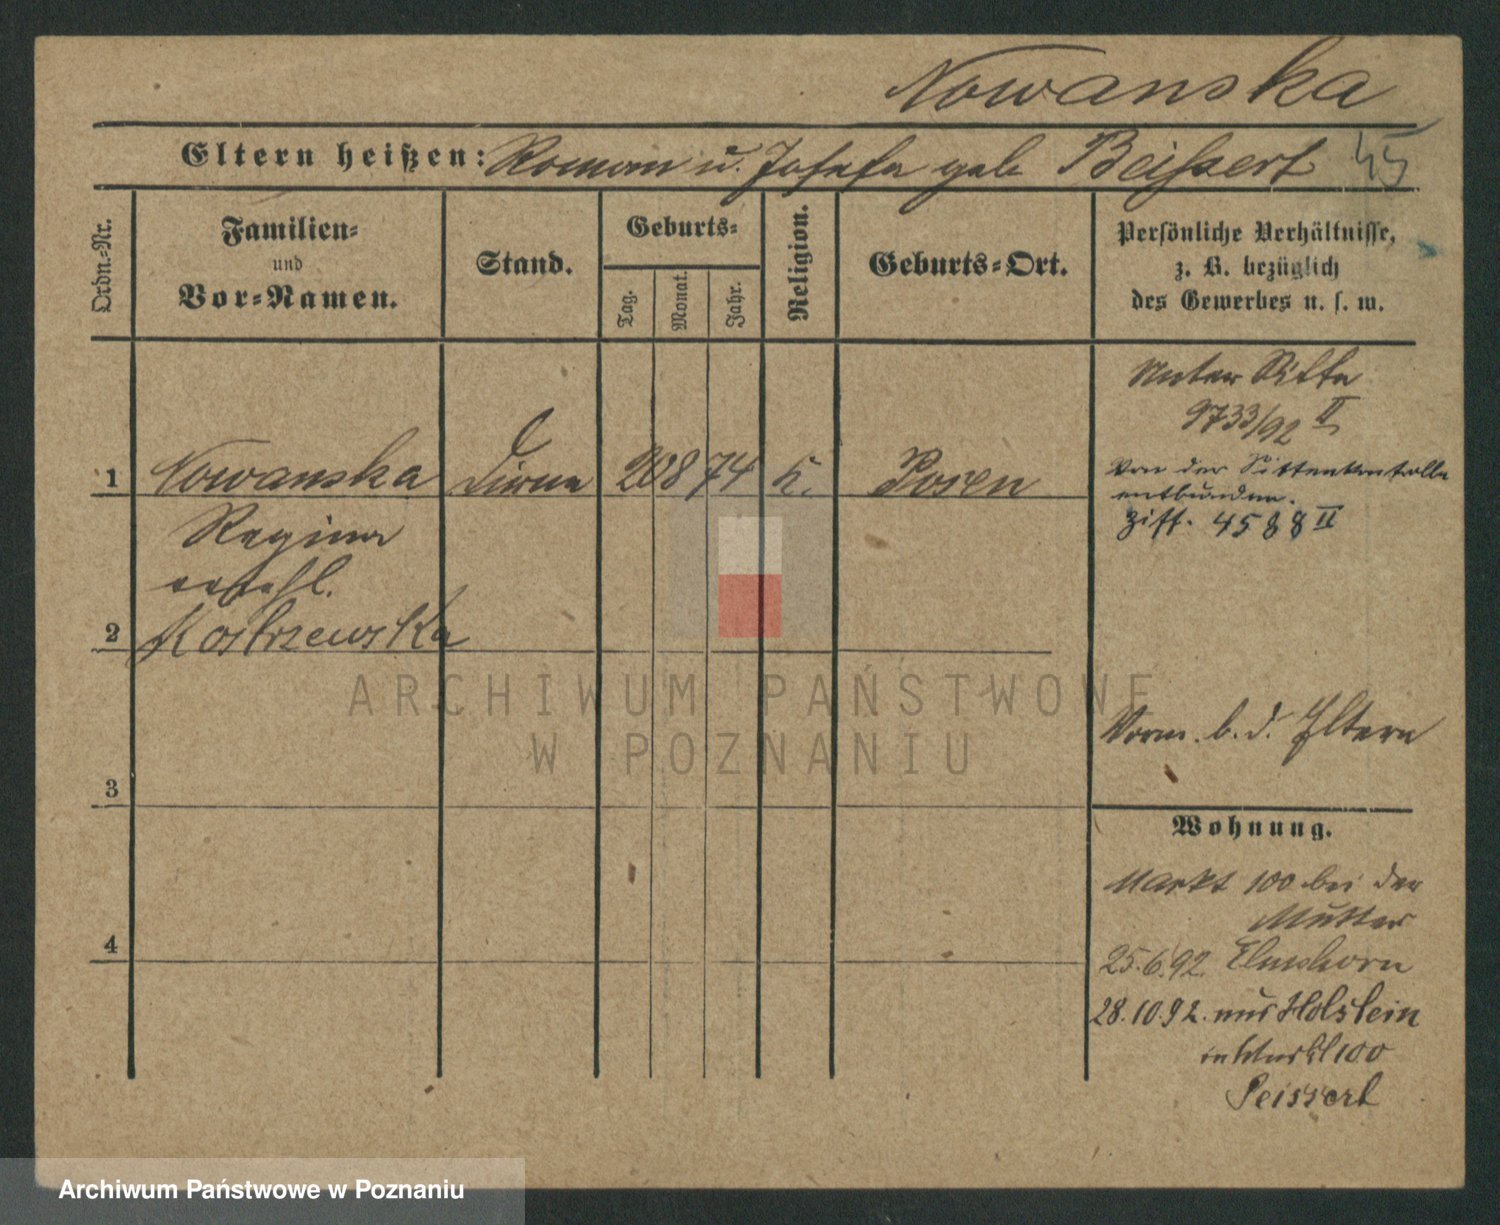 Nowanska
Eltern heißen: Roman u. Josefa geb Beissert
45
Ordn.-Nr.
Familien-
und
Vor-Namen.
Stand.
Geburts-
Tag.
Monat.
Jahr.
Religion.
Geburts-Ort.
Persönliche Verhältnisse,
z. B. bezüglich
des Gewerbes u. s. w.
Unter Sitte
9733/92 II
1 Nowanska Dirne 20 8 74 k. Posen
Von der Sittenkontrolle
entbunden.
Ziff. 4588 II
Regina
verehl.
2 Kostrzewska
ARCHIWUM PAŃSTWOWE
W POZNANIU
Vorm. b. d. Eltern
3
Wohnung.
Markt 100 bei der
Mutter
4
25.6.92. Elmshorn
28.10.92. aus Holstein
Markt 100
Peissert
Archiwum Państwowe w Poznaniu